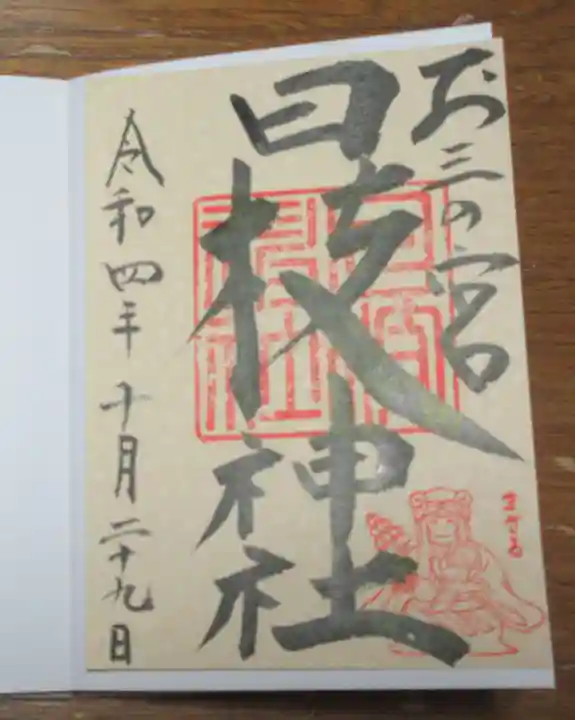 お三の宮
日枝神社
まさる
令和四年十月二十九日